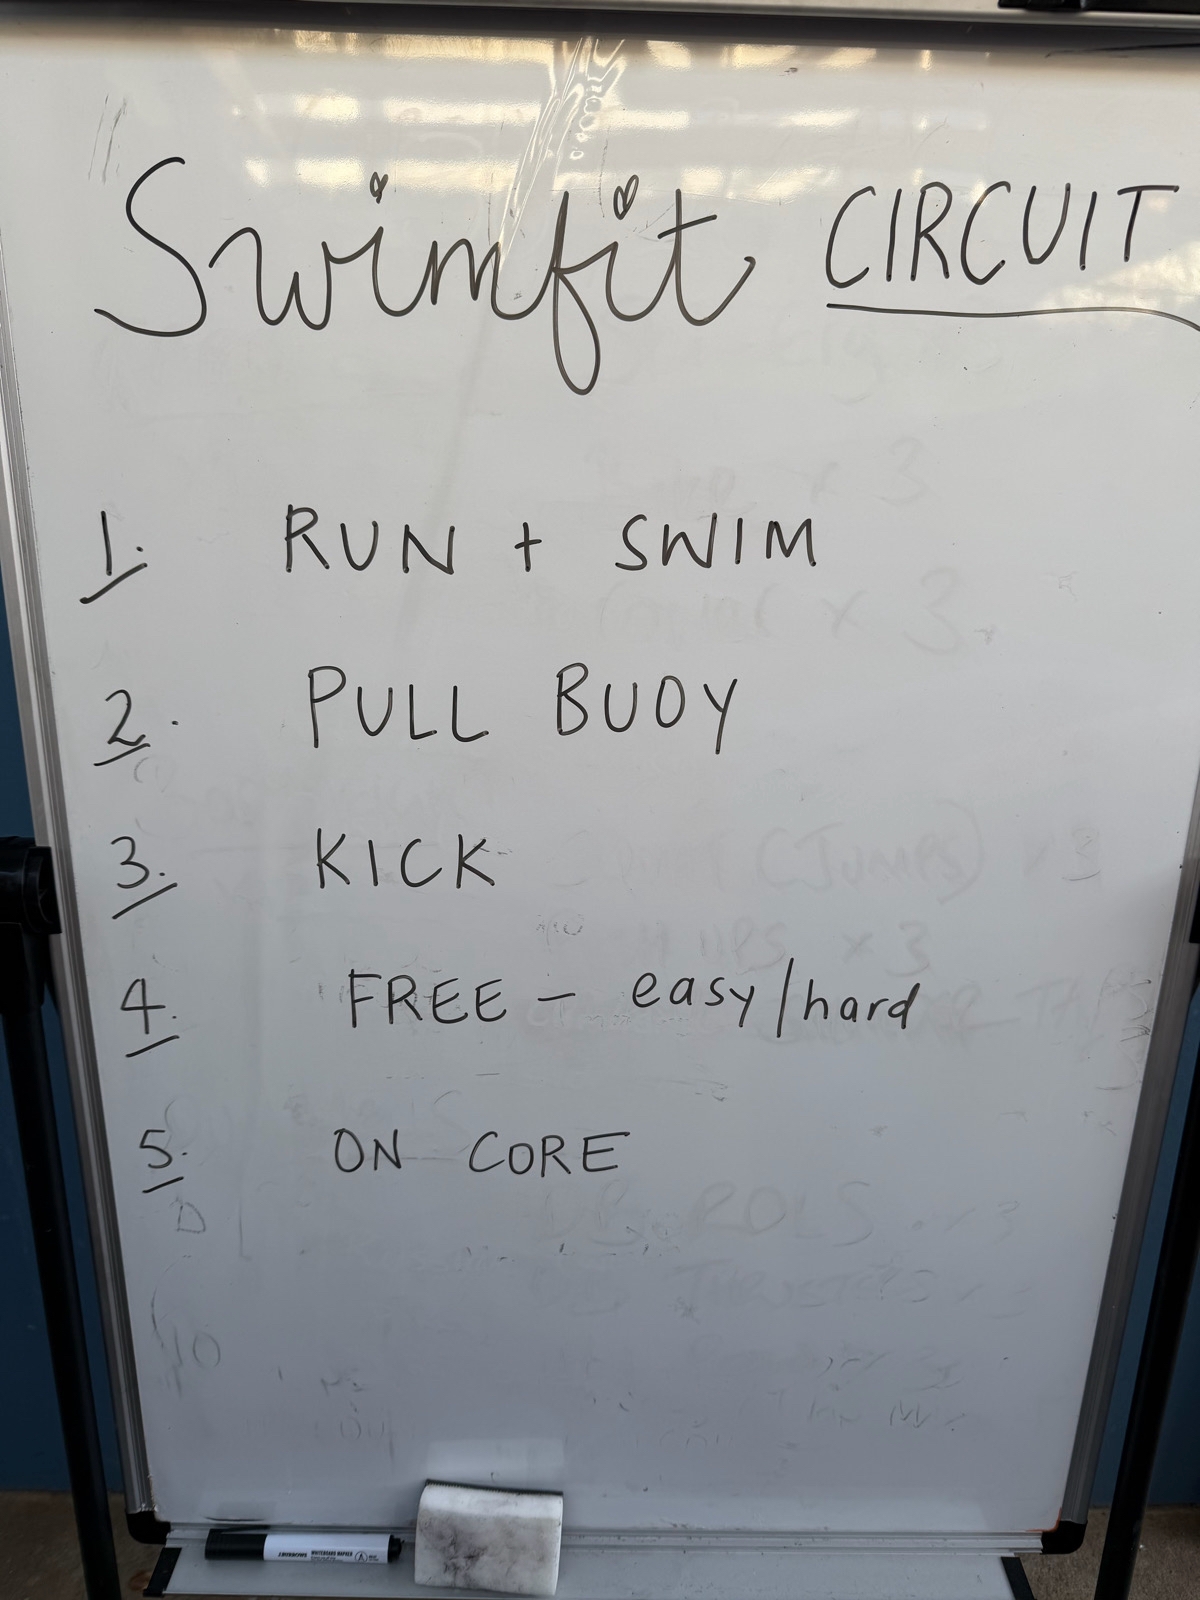 Swimfit CIRCUIT
1. RUN + SWIM
2. PULL BUOY
3. KICK
4. FREE - easy/hard
5. ON CORE
WHITEBOARD MARKER